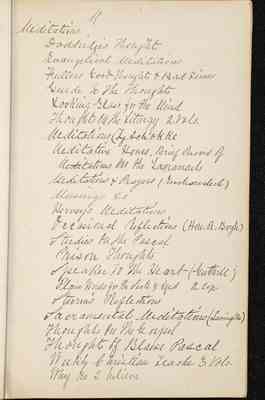 Meditations
Doddridge's Thought
Evangelical Meditations
Fullers Good Thought & Bad Times
Guide to The Thoughts
Looking-Glass for the Mind
Thought On the Liturgy 2 Vols.
Meditations (By Schokke
Meditative Hours, Being Poems Of
Meditations On the Sacrament
Meditations & Prayers (
Musings &c
Hervey's Meditations
Occasional Reflections (Hon. R. Boyle)
Studies On the Pascal
Prison Thoughts
Speaker To The Heart - (Guthrie)
Plain Words for the Sick & Aged 2 cop
Sturm's Reflections
Sacramental Meditations (
Thoughts On The Gospel
Thought Of Blaise Pascal
Weekly Christian Teacher 3 Vols.
Why Do I believe